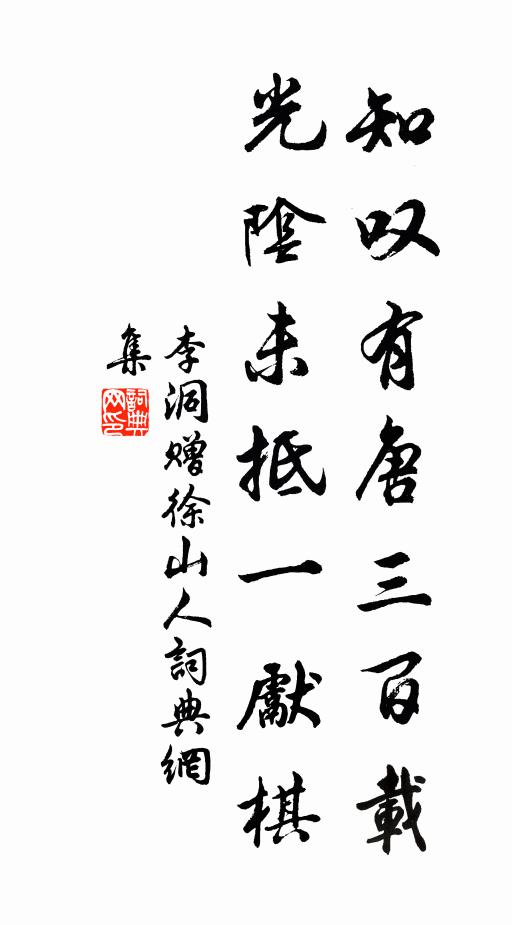 知叹有唐三百載
光陰未抵一獻棋
李洞赠徐山人詞典網
集
詞典
网印